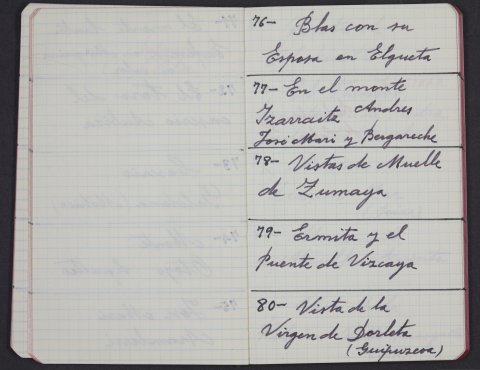 76- Blas con su
Esposa en Elgueta
77- En el monte
Izarraitz Andres
José Mari y Bergareche
78- Vistas de Muelle
de Zumaya
79- Ermita y el
Puente de Vizcaya
80- Vista de la
Virgen de Dorleta
(Guipuzcoa)